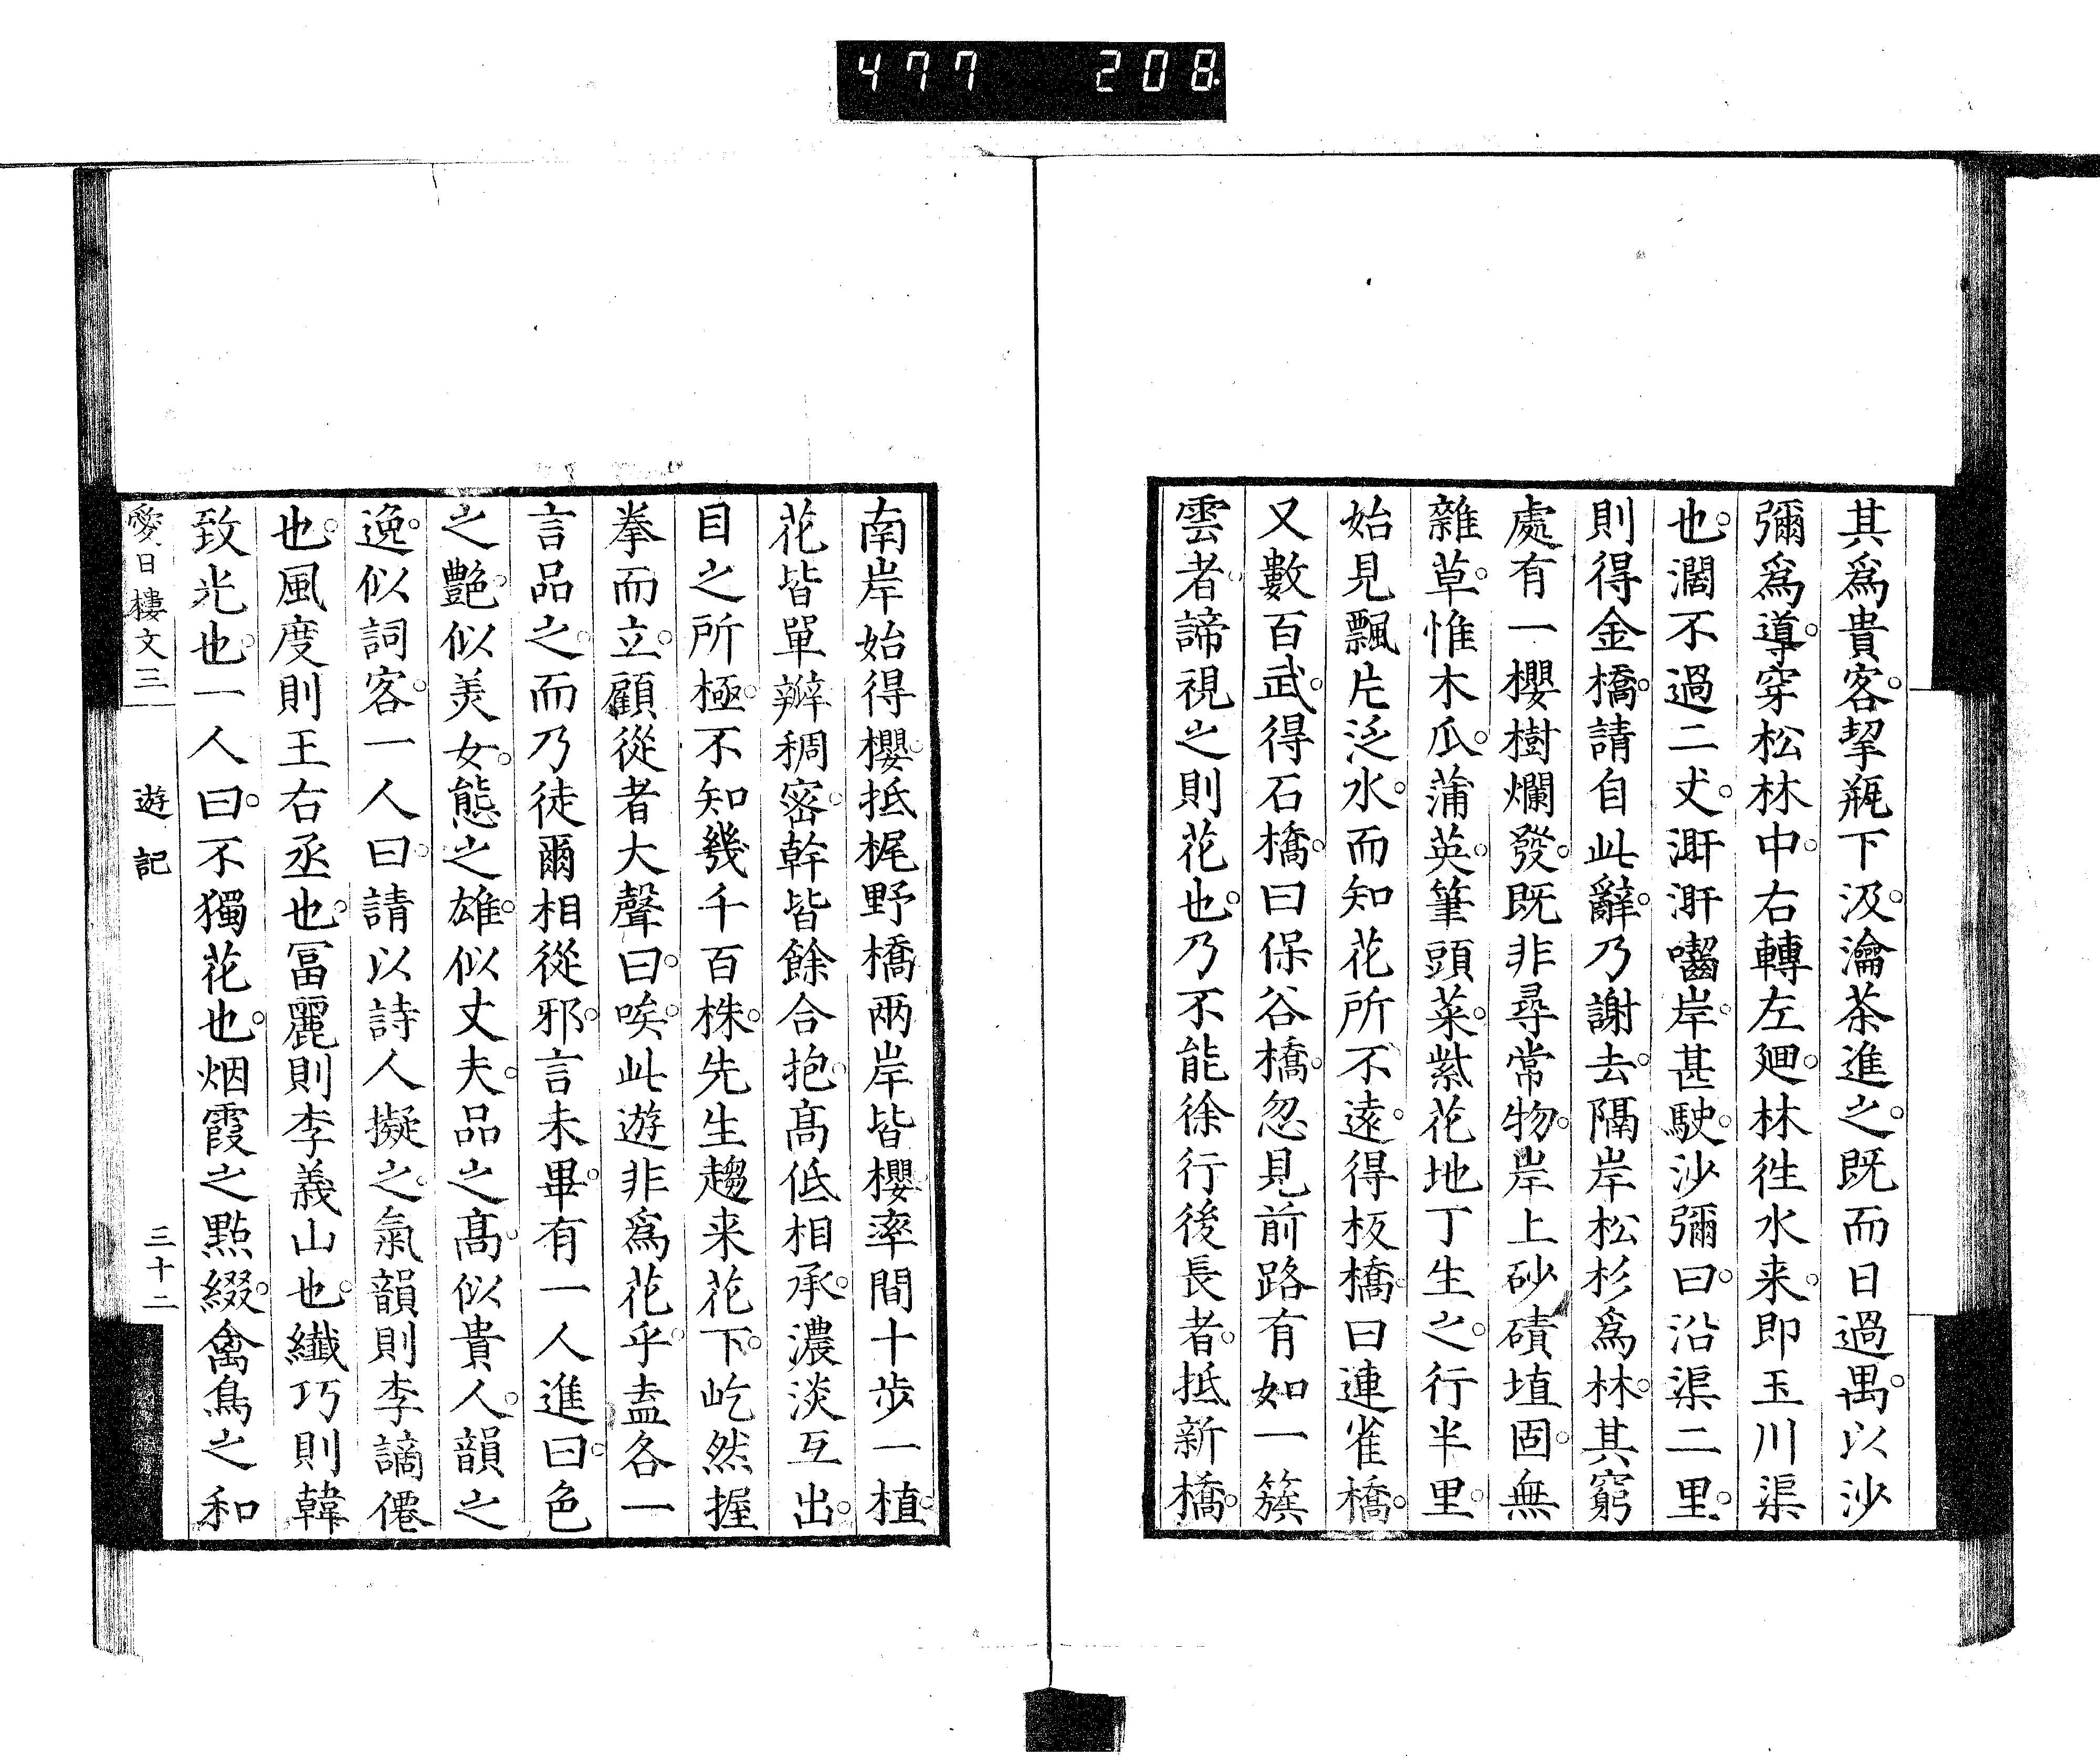 477 208
其爲貴客。挈瓶下汲。瀹茶進之。既而日過禺。以沙
彌爲導。穿松林中。右轉左廻。林徃水来。即玉川渠
也。濶不過二丈。汧汧囓岸。甚駛。沙彌曰。沿渠二里。
則得金橋。請自此辭。乃謝去。隔岸松杉爲林。其窮
處有一櫻樹爛發。既非尋常物。岸上砂磧埴固。無
雜草。惟木瓜。蒲英。筆頭菜。紫花地丁生之。行半里。
始見飄片泛水。而知花所不遠。得板橋。曰連雀橋。
又數百武。得石橋。曰保谷橋。忽見前路有如一簇
雲者。諦視之則花也。乃不能徐行後長者。抵新橋。
南岸始得櫻。抵梶野橋兩岸皆櫻。率間十步一植。
花皆單瓣稠密。幹皆餘合抱。高低相承。濃淡互出。
目之所極。不知幾千百株。先生趨来花下。屹然握
拳而立。顧從者大聲曰。唉。此遊非爲花乎。盍各一
言品之。而乃徒爾相從邪。言未畢。有一人進曰。色
之艷。似美女。態之雄。似丈夫。品之高。似貴人。韻之
逸。似詞客。一人曰。請以詩人擬之。氣韻則李謫僊
也。風度則王右丞也。冨麗則李義山也。纖巧則韓
致光也。一人曰。不獨花也。烟霞之點綴。禽鳥之和
愛日樓文三 遊記 三十二